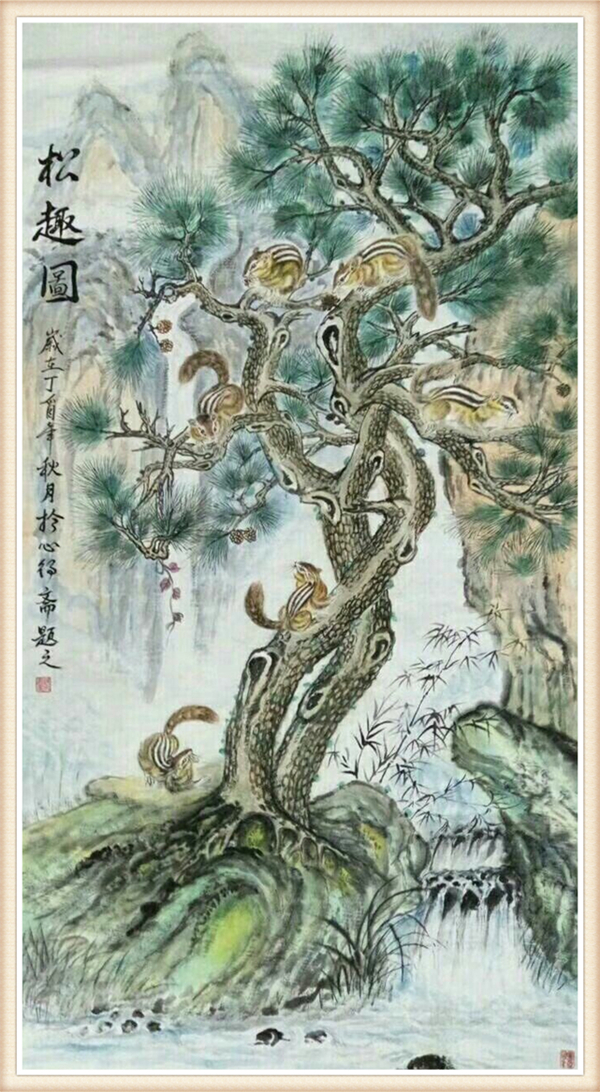 松趣圖
歲在丁酉年秋月於心得斋题之